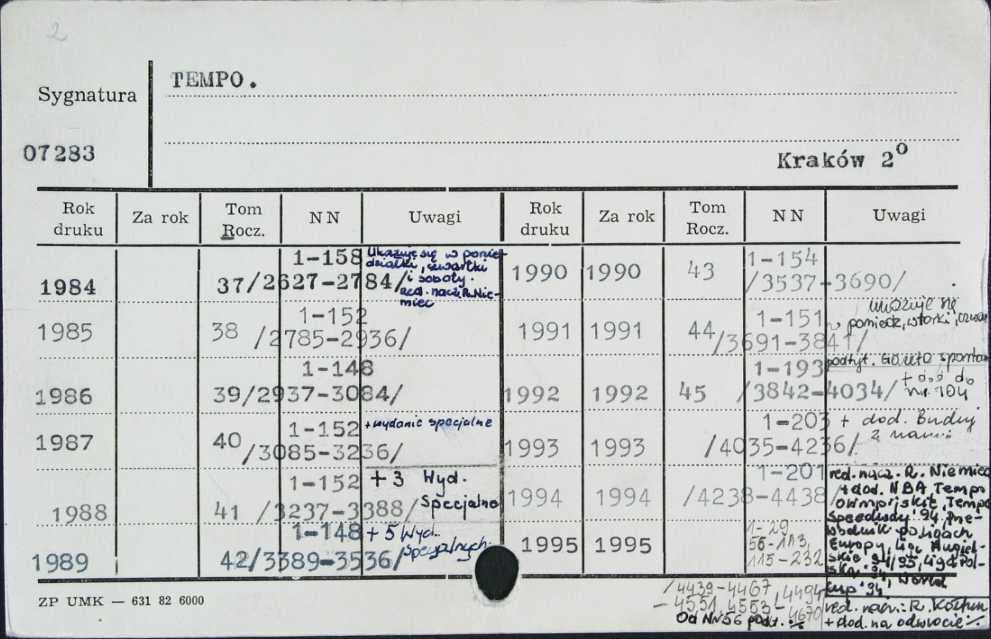 2
TEMPO.
Sygnatura
07283
Kraków 2°
Rok druku Za rok Tom Rocz. NN Uwagi Rok druku Za rok Tom Rocz. NN Uwagi
1984 37 1-158 /2627-2784/ Ukazuje się w poniedziałki, czwartki i soboty. red. nacz. R. Niemiec
1990 1990 43 1-154 /3537-3690/
1985 38 1-152 /2785-2936/
1991 1991 44 1-151 /3691-3841/ ukazuje się poniedz, wtorki,
1986 39 1-148 /2937-3084/
1992 1992 45 1-193 /3842-4034/ podtyt. do nr. 104
1987 40 1-152 /3085-3236/ + wydanie specjalne
1993 1993 1-203 /4035-4236/ + dod. Buduj z nami
1988 41 1-152 /3237-3388/ +3 Wyd. Specjalne
1994 1994 1-201 /4238-4438/ red. nacz. R. Niemiec + dod. NBA Tempo Olimpijskie, Tempo Speedway '94,
1989 42 1-148 /3389-3536/ + 5 Wyd. specjalnych
1995 1995 1-29 56-113, 115-232 po ligach Europy, Liga '94/95, Liga Polska '94, World Cup '94.
ZP UMK — 631 82 6000
/4439-4467, 4494
-4551, 4553-4670
Od Nr 56 podt.:
red. nacz.: R.
+ dod. na odwrocie